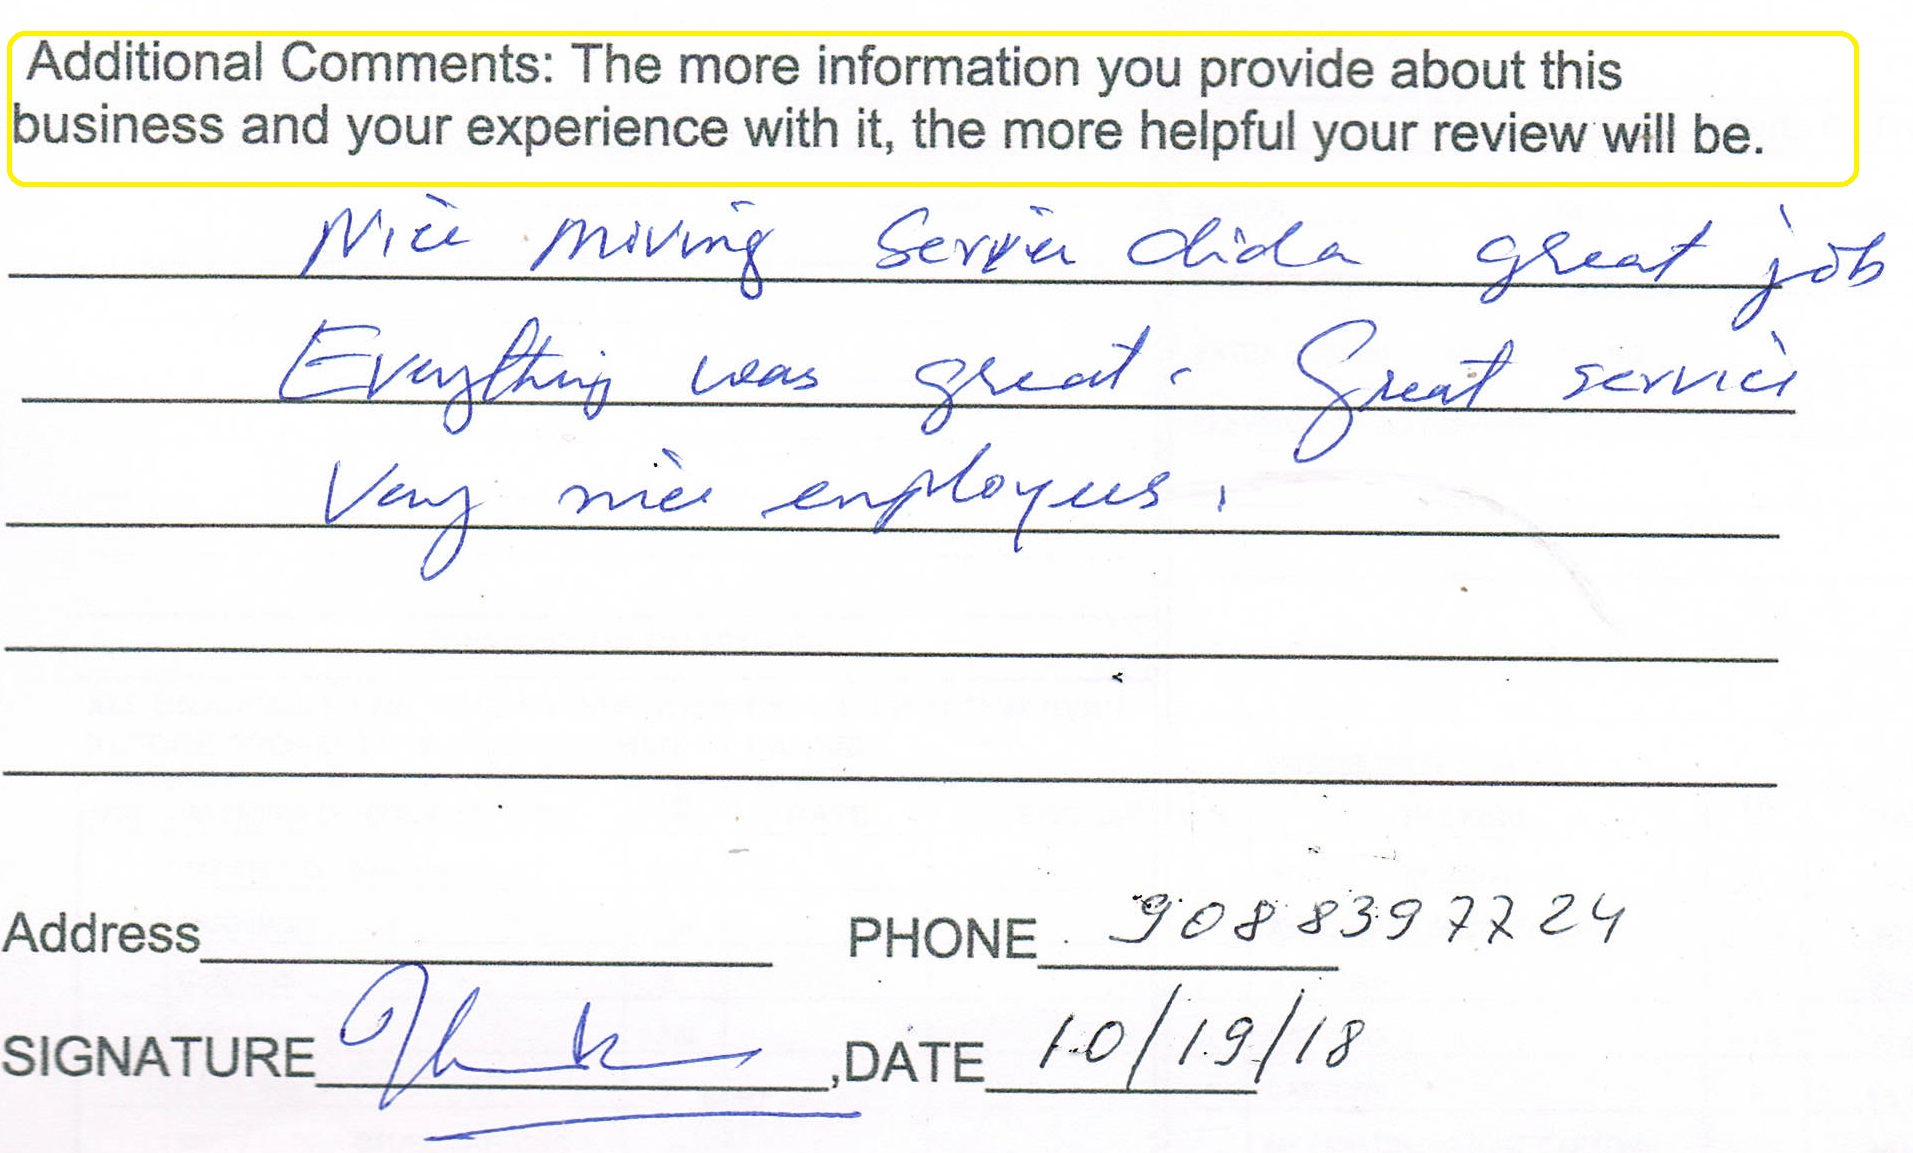 Additional Comments: The more information you provide about this
business and your experience with it, the more helpful your review will be.
Nice moving Service did a great job
Everything was great. Great service
Very nice employees.
Address PHONE 9088397724
SIGNATURE ,DATE 10/19/18